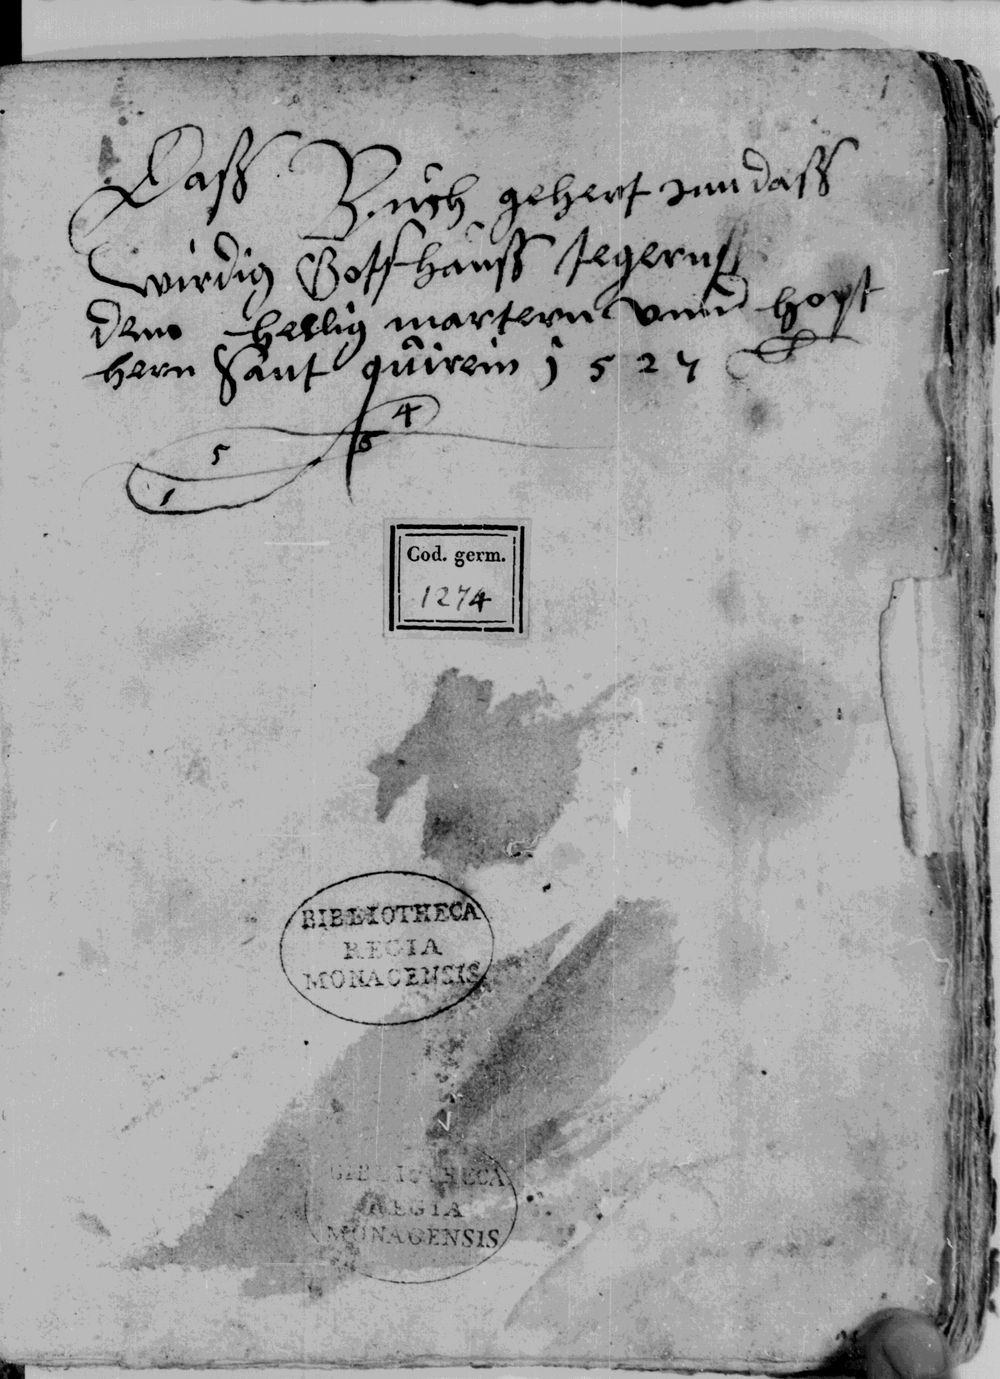 1
Dasß Buch gehert inn dasß
wirdig Gotshausß tegerns
dem hellig martern vnnd hopt
hern Sant quirein 1527
4
5 6
1
Cod. germ.
1274
BIBLIOTHECA
REGIA
MONACENSIS
BIBLIOTHECA
REGIA
MONACENSIS